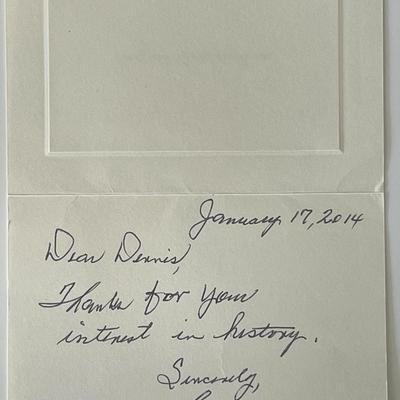 January 17, 2014
Dear Dennis,
Thanks for your
interest in history.
Sincerely,